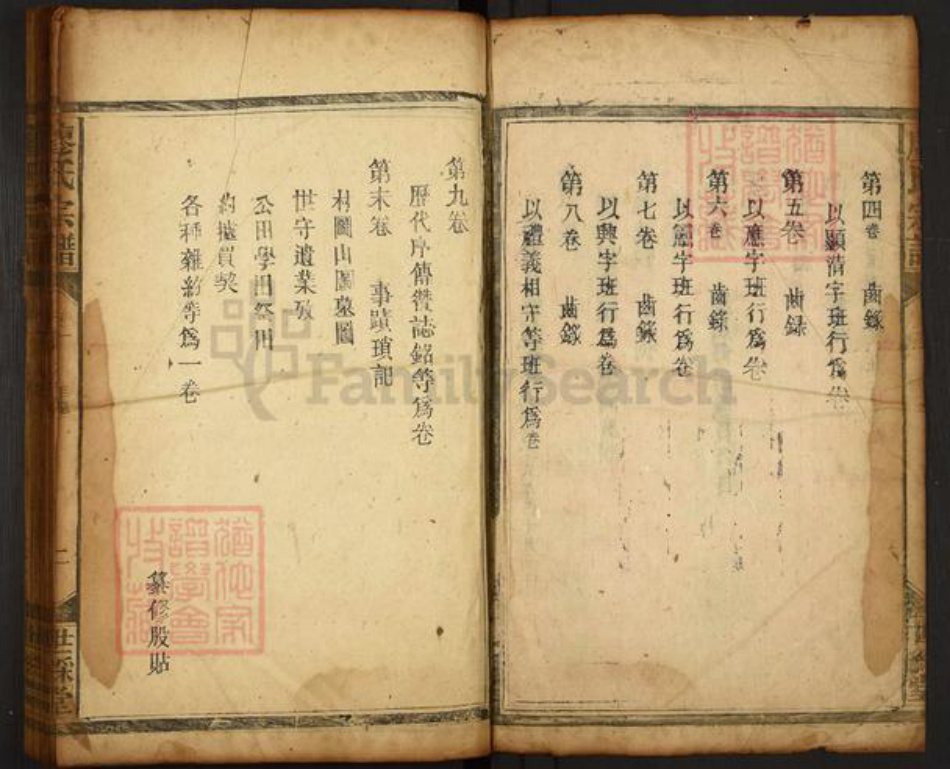 第四卷 齒錄
以顯清字班行為卷
第五卷 齒録
以應字班行為卷
第六卷 齒錄
以字班行為卷
第七卷 齒錄
以興字班行為卷
第八卷 齒錄
以禮義相守等班行爲卷
第九卷
歷代序傳贊誌銘等爲卷
第末卷 事蹟瑣記
村圖山圖墓圖
世守遺業攷
公田學田祭田
約據買契
各種雜約等爲一卷
纂修股貼
氏宗譜
二
世綵堂
FamilySearch